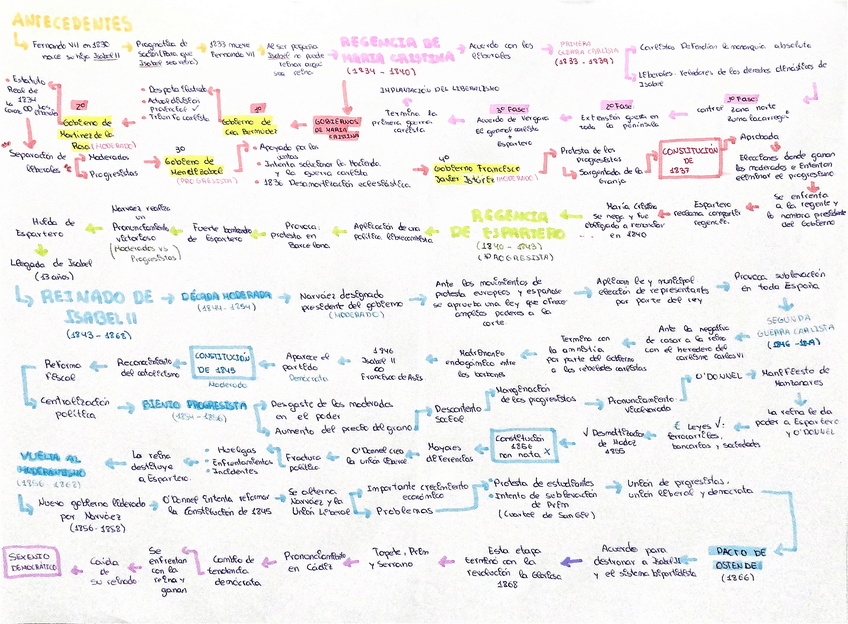 ANTECEDENTES
Fernando VII en 1830
nace su hija Isabel II
Pragmática de
sación (Para que
Isabel sea reina)
1833 muere
Fernando VII
Al ser pequeña
Isabel no puede
reinar
REGENCIA DE
MARÍA CRISTINA
(1834 - 1840)
Acuerdo con los
liberales
PRIMERA
GUERRA CARLISTA
(1833 - 1839)
Carlistas: Defendían la monarquía absoluta
Liberales: Veladores de los derechos dinásticos de
Isabel
IMPLANTACIÓN DEL LIBERALISMO
1ª Fase:
control zona norte
2ª Fase:
Extensión guerra en
toda la península
3ª Fase:
Acuerdo de Vergara
Espartero
Termina la
primera guerra
carlista
GOBIERNOS
DE MARÍA
CRISTINA
1º
Gobierno de
Cea Bermúdez
Despota ilustrado
Actual división
provincial ✓
Triunfo carlista
2º
Gobierno de
Martínez de la
Rosa (MODERADO)
Estatuto
Real de
1834
Separación de
liberales
Moderados
Progresistas
3º
Gobierno de
Mendizábal
(PROGRESISTA)
Apoyado por las
juntas
Intenta solucionar la Hacienda
y la guerra carlista
1836 Desamortización eclesiástica
4º
Gobierno Francisco
Javier Istúriz (MODERADO)
Protesta de los
progresistas
Sargentada de la
Granja
CONSTITUCIÓN
DE
1837
Aprobada
Elecciones donde ganan
los moderados e intentan
eliminar el progresismo
Se enfrenta
a la regente y
lo nombra presidente
del Gobierno
Espartero
reclama compartir
regencia.
María Cristina
se nega y fue
obligada a renunciar
en 1840
REGENCIA
DE ESPARTERO
(1840 - 1843)
(PROGRESISTA)
Aplicación de una
política librecambista
Provoca:
protesta en
Barcelona
Fuerte bombardeo
de Espartero
Narváez realiza
un
Pronunciamiento
victorioso
(Moderados vs
Progresistas)
Huida de
Espartero
Llegada de Isabel
(13 años)
REINADO DE
ISABEL II
(1843 - 1868)
DÉCADA MODERADA
(1844 - 1854)
Narváez designado
presidente del gobierno
(MODERADO)
Ante los movimientos de
protesta europeos y españoles
se aprueba una ley que ofrece
amplios poderes a la
corte
Aplican ley municipal
elección de representantes
por parte del rey
Provoca sublevación
en toda España
SEGUNDA
GUERRA CARLISTA
(1846 - 1849)
Ante la negativa
de casar a la reina
con el heredero del
carlismo Carlos VI
Termina con
la amnistía
por parte del Gobierno
a los rebeldes carlistas
Matrimonio
endogámico entre
los borbones
1846
Isabel II
∞
Francisco de Asís
Aparece el
partido
Demócrata
CONSTITUCIÓN
DE 1845
Moderada
Reconocimiento
del catolicismo
Reforma
fiscal
Centralización
política
BIENIO PROGRESISTA
(1854 - 1856)
Desgaste de los moderados
en el poder
Aumento del precio del grano
Descontento
social
Marginación
de los progresistas
Pronunciamiento
Vicalvarada
O'DONNEL
Manifiesto de
Manzanares
La reina le da
poder a Espartero
y O'DONNEL
Leyes ✓:
ferrocarriles,
bancarias y sociedades
✓ Desmortización
de Madoz
1855
Constitución
1856
non nata X
Mayores
diferencias
O'Donnel crea
la unión liberal
Fractura
política
Huelgas
Enfrentamientos
Incidentes
La reina
destituye
a Espartero
VUELTA AL
MODERANTISMO
(1856 - 1868)
Nuevo gobierno liderado
por Narváez
(1856 - 1858)
O'Donnel intenta reformar
la Constitución de 1845
Se alterna
Narváez y la
Unión Liberal
Importante crecimiento
económico
Problemas
Protesta de estudiantes
Intento de sublevación
de Prim
(Cuartel de San Gil)
Unión de progresistas,
unión liberal y demócrata
PACTO DE
OSTENDE
(1866)
Acuerdo para
destronar a Isabel II
y el sistema bipartidista
Esta etapa
terminó con la
revolución la Gloriosa
1868
Topete, Prim
y Serrano
Pronunciamiento
en Cádiz
Cambio de
tendencia
demócrata.
Se
enfrentan
con la
reina y
ganan
Caída
de
su reinado
SEXENIO
DEMOCRÁTICO